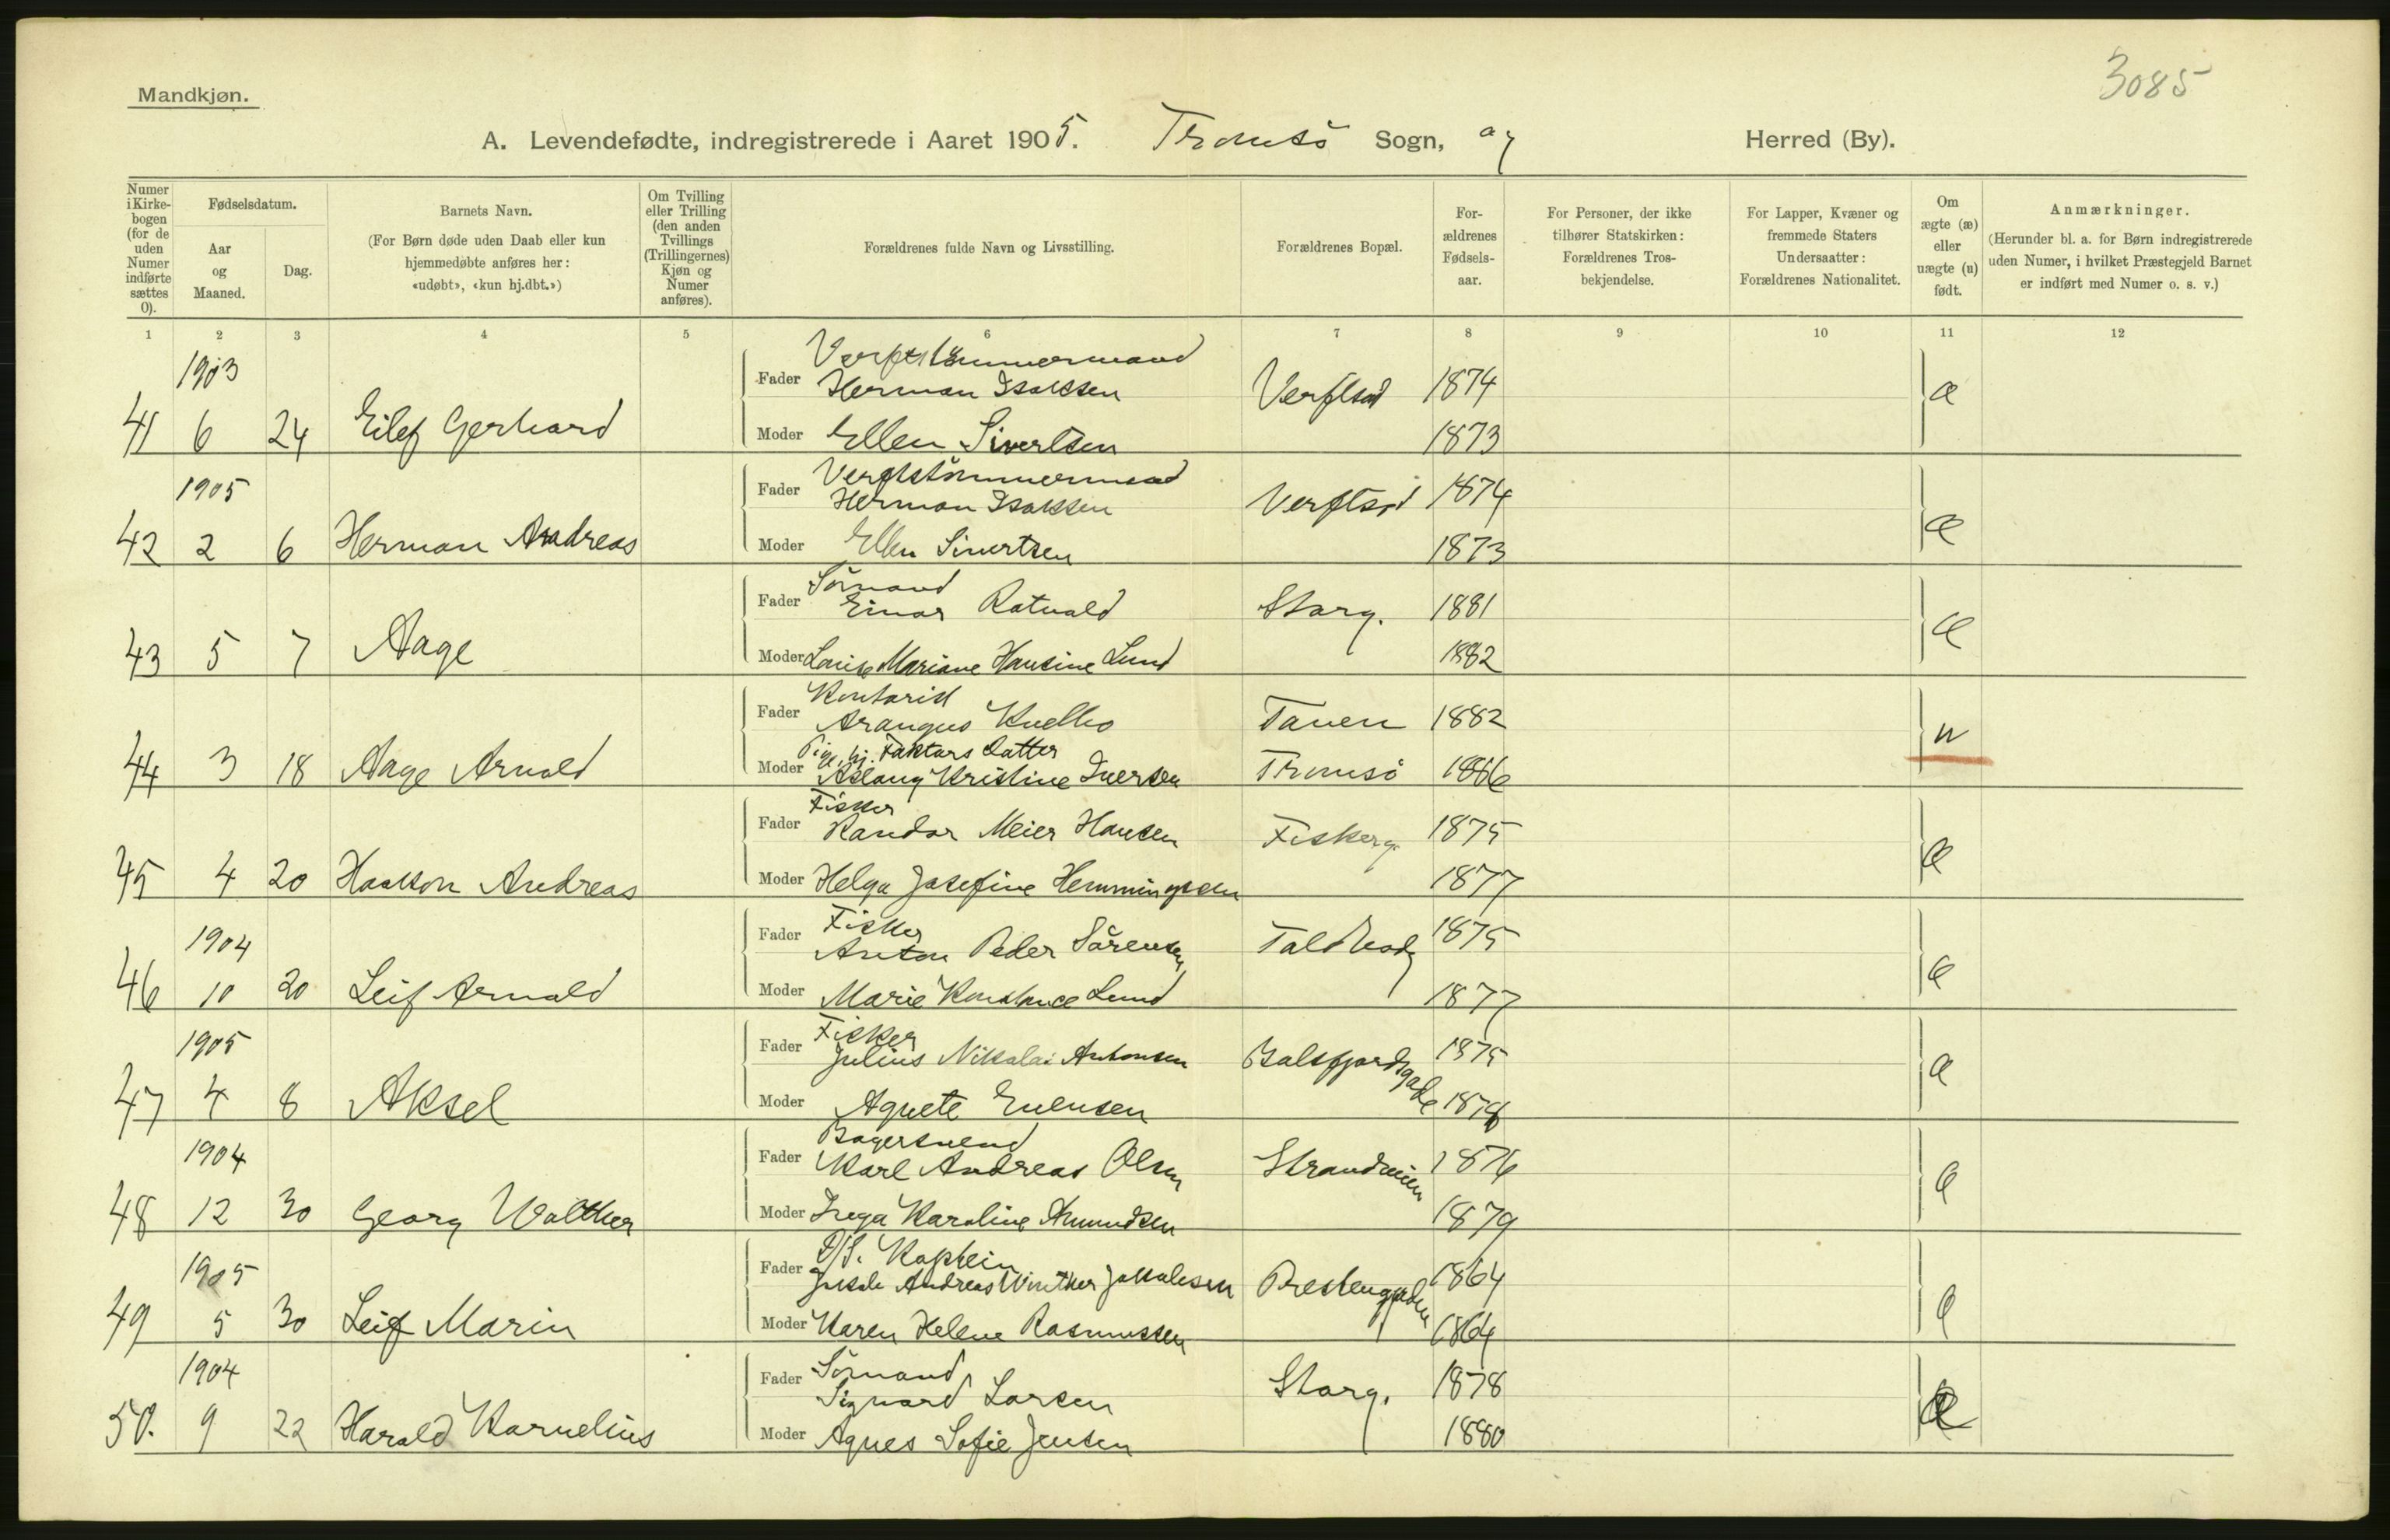 3085
Mandkjøn.
A. Levendefødte, indregistrerede i Aaret 1905. Tromsö Sogn, og Herred (By).
Numer i Kirke-bogen (for de uden Numer indførte sættes 0).
Fødselsdatum.
Aar og Maaned.
Dag.
Barnets Navn.
(For Børn døde uden Daab eller kun hjemmedøbte anføres her: «udøbt», «kun hj.dbt.»)
Om Tvilling eller Trilling (den anden Tvillings (Trillingernes) Kjøn og Numer anføres).
Forældrenes fulde Navn og Livsstilling.
Forældrenes Bopæl.
For-ældrenes Fødsels-aar.
For Personer, der ikke tilhører Statskirken: Forældrenes Tros-bekjendelse.
For Lapper, Kvæner og fremmede Staters Undersaatter: Forældrenes Nationalitet.
Om ægte (æ) eller uægte (u) født.
Anmærkninger.
(Herunder bl. a. for Børn indregistrerede uden Numer, i hvilket Præstegjeld Barnet er indført med Numer o. s. v.)
1 2 3 4 5 6 7 8 9 10 11 12
1903 Verftstömmermand
Fader Herman Isaksen Verftsd 1874 æ
41 6 24 Eilef Gerhard Moder Ellen Sivertsen 1873
1905 Verftstömmermand
Fader Herman Isaksen Verftsd 1874 æ
42 2 6 Herman Andreas Moder Ellen Sivertsen 1873
Sömand
Fader Einar Ratvald Storg. 1881 æ
43 5 7 Aage Moder Louise Mariane Hansine Lund 1882
Kontorist
Fader Arangus Tanen 1882 u
Pige, hj. Faktors Datter
44 3 18 Aage Arnold Moder Aslaug Kristine Iversen Tromsö 1886
Fisker
Fader Randor Meier Hansen Fiskerg. 1875 æ
45 4 20 Haakon Andreas Moder Helga Josefine Hemmingsen 1877
1904 Fisker
Fader Anton Peder Sörensen 1875 æ
46 10 20 Leif Arnold Moder Marie Konstance Lund 1877
1905 Fisker
Fader Julius Nikolai Antonsen Balsfjordsgade 1875 æ
47 4 8 Aksel Moder Agnete Evensen 1878
1904 Bagersvend
Fader Karl Andreas Olsen Strandveien 1876 æ
48 12 30 Georg Walther Moder Inga Karoline Amundsen 1879
1905 D/S. Kaptein
Fader Andreas Winther Jakobsen Prestengaden 1864 æ
49 5 30 Leif Marin Moder Karen Helene Rasmussen 1864
1904 Sömand
Fader Signard Larsen Storg. 1878 æ
50. 9 22 Harald Kornelius Moder Agnes Sofie Jensen 1880